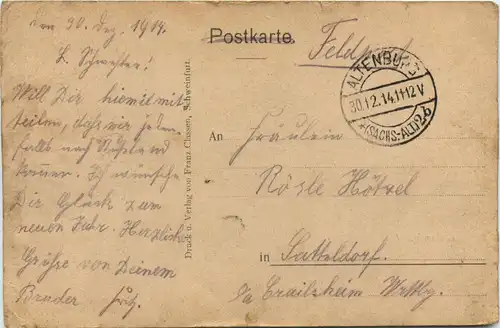 den 30. Dez. 1914.
L. Schwester!
Will Dir hiemit mit-
teilen, daß wir jeden-
falls nach Rußland
kommen. Ich wünsche
Dir Glück zum
neuen Jahr. Herzliche
Grüße von Deinem
Bruder Fritz.
Druck u. Verlag von Franz Clossen, Schweinfurt.
Postkarte.
Feldpost
ALTENBURG
30.12.14.11-12V
(SACHS.-ALT.) 2b
An
Fräulein
Rösle Hötzel
in Satteldorf.
Oa Crailsheim Wrttbg.